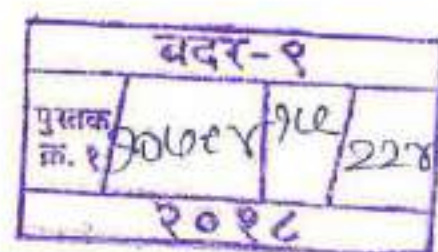 बदर-९
पुस्तक
क्र. १ १०७९४ २२४
२०१८